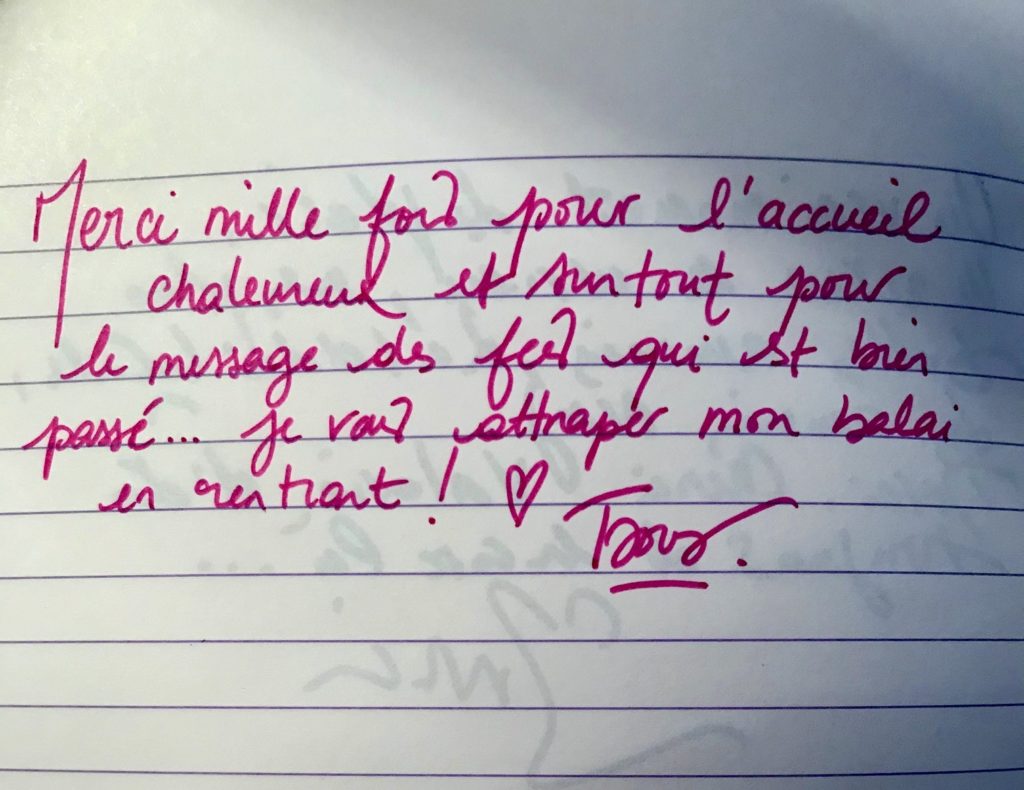 Merci mille fois pour l'accueil
chaleureux et surtout pour
le message des fées qui est bien
passé... je vais attraper mon balai
en rentrant ! ♡